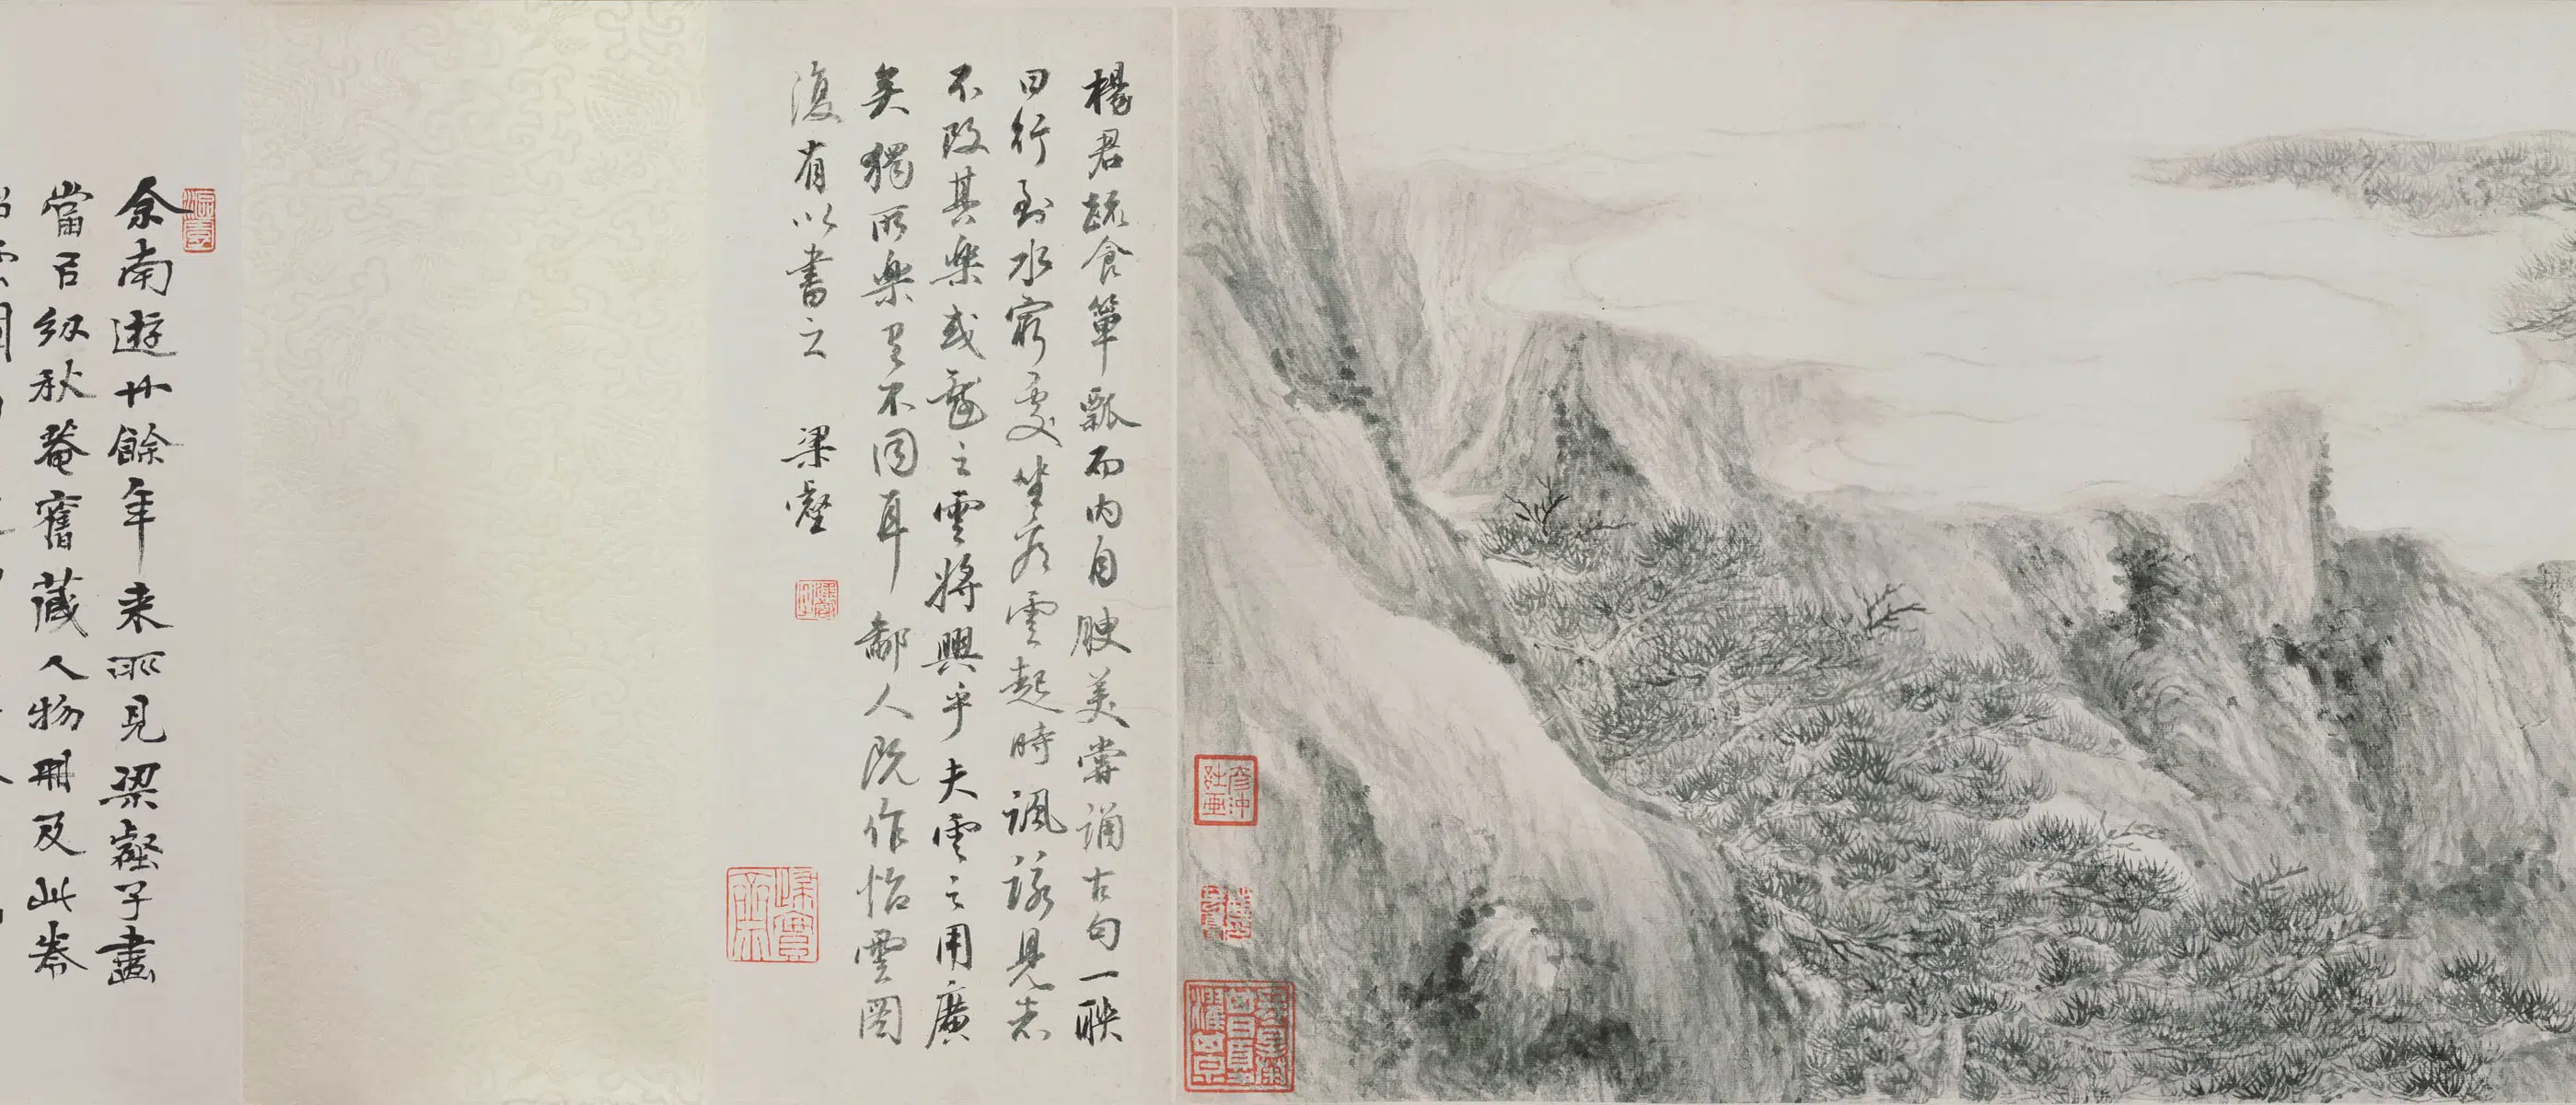 楊君疏食簞瓢而內自腴美嘗誦古句一聯
曰行到水窮處坐看雲起時諷詠見志
不改其樂或戲之雲將興乎夫雲之用廣
矣獨所樂有不同耳鄙人既作怡雲圖
復有以書之 梁壑
余南遊卅餘年来所見梁壑子畫
當㠯紉秋菴舊藏人物冊及此卷